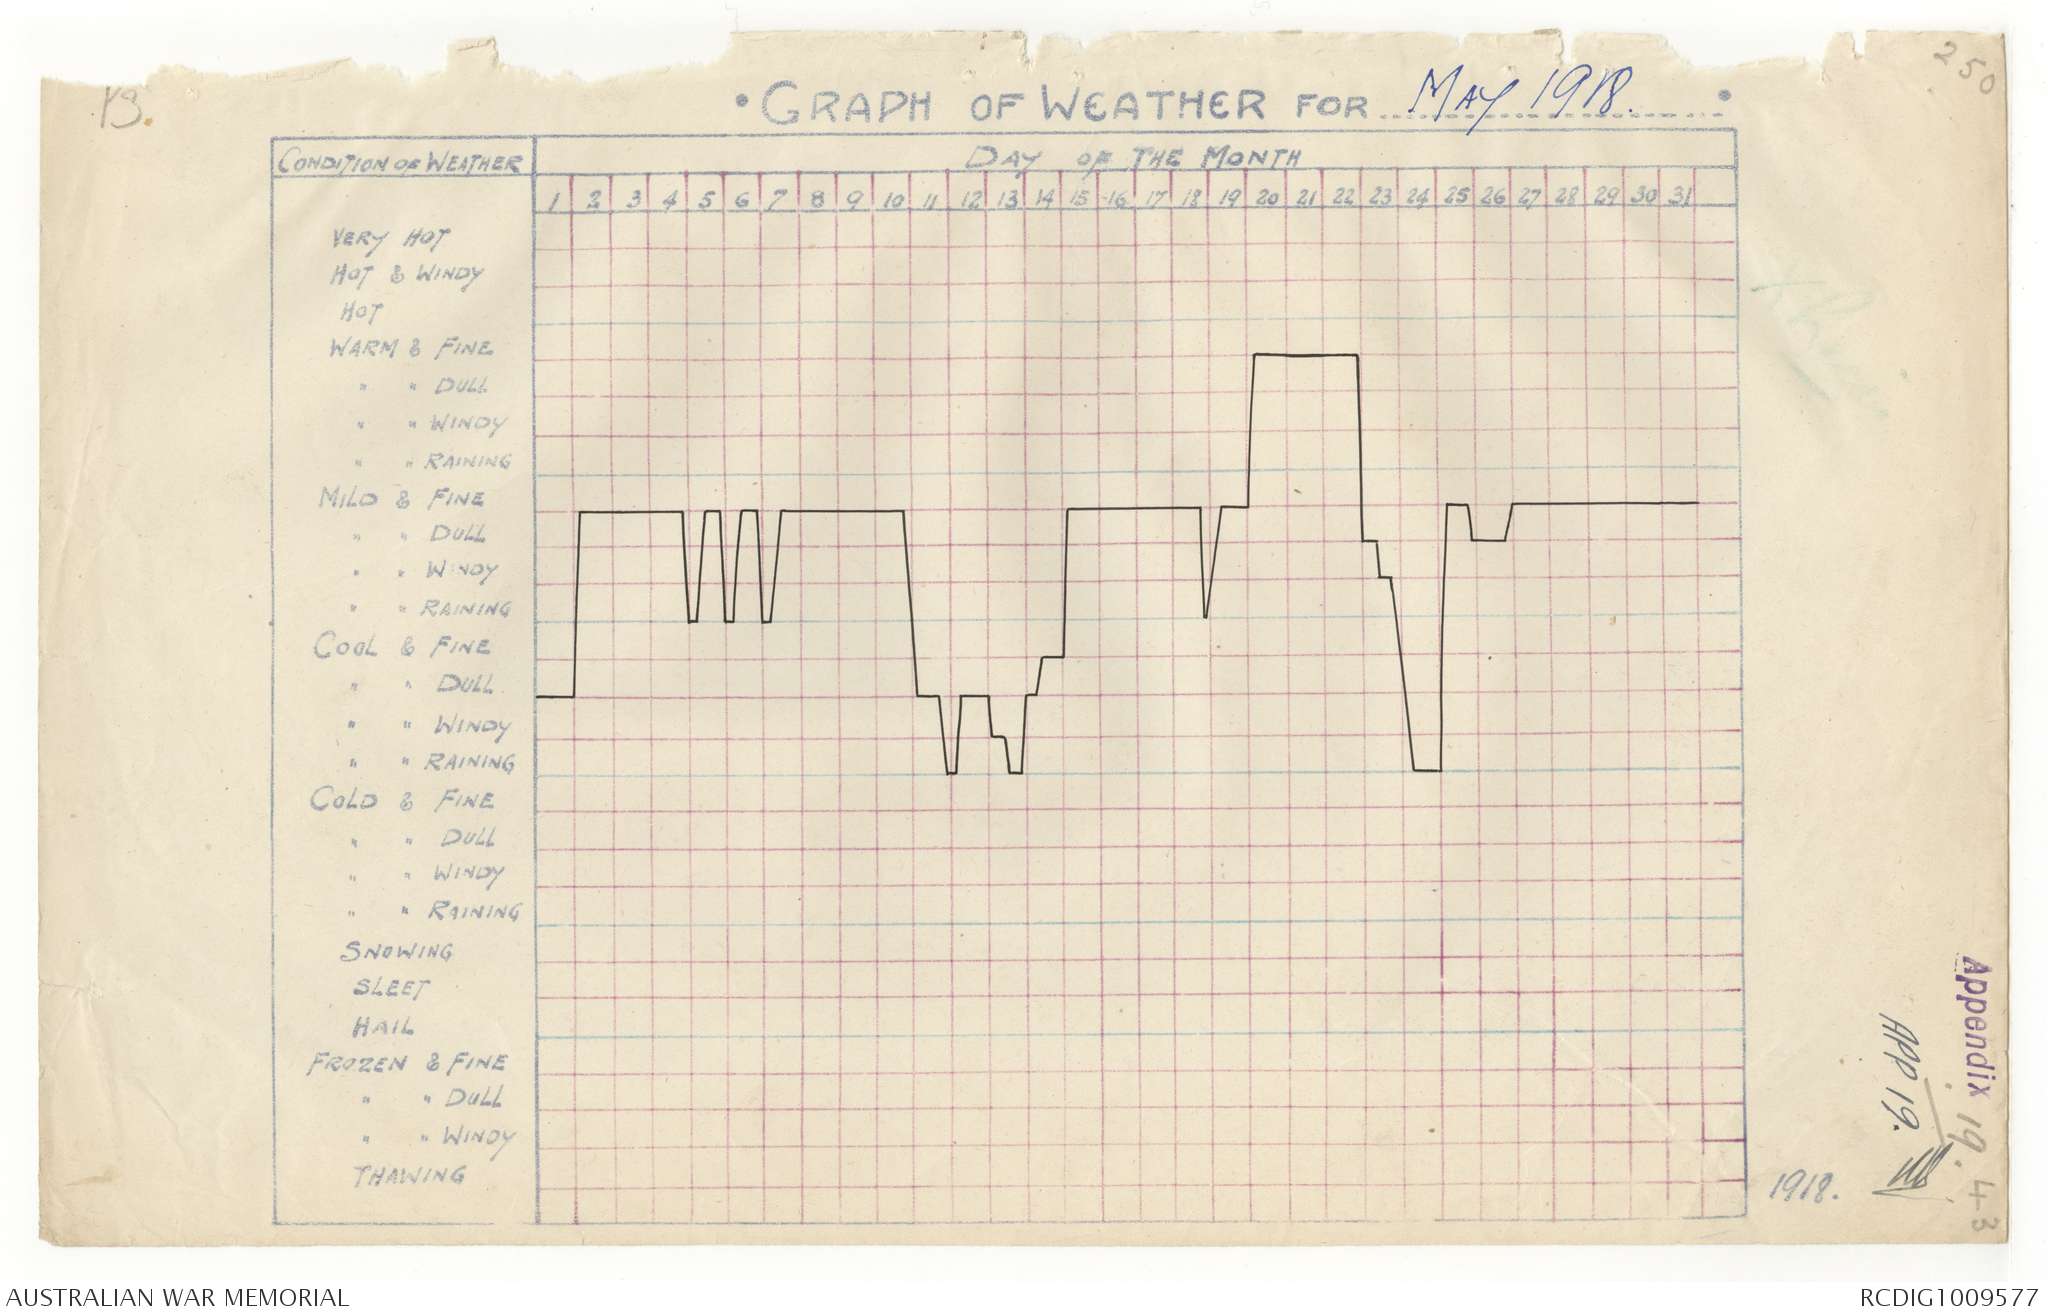 13.
250
• GRAPH OF WEATHER FOR MAY 1918. •
CONDITION OF WEATHER
DAY OF THE MONTH
1 2 3 4 5 6 7 8 9 10 11 12 13 14 15 16 17 18 19 20 21 22 23 24 25 26 27 28 29 30 31
VERY HOT
HOT & WINDY
HOT
WARM & FINE
" " DULL
" " WINDY
" " RAINING
MILD & FINE
" " DULL
" " WINDY
" " RAINING
COOL & FINE
" " DULL
" " WINDY
" " RAINING
COLD & FINE
" " DULL
" " WINDY
" " RAINING
SNOWING
SLEET
HAIL
FROZEN & FINE
" " DULL
" " WINDY
THAWING
Appendix 19. 43
APP 19.
1918.
AUSTRALIAN WAR MEMORIAL
RCDIG1009577